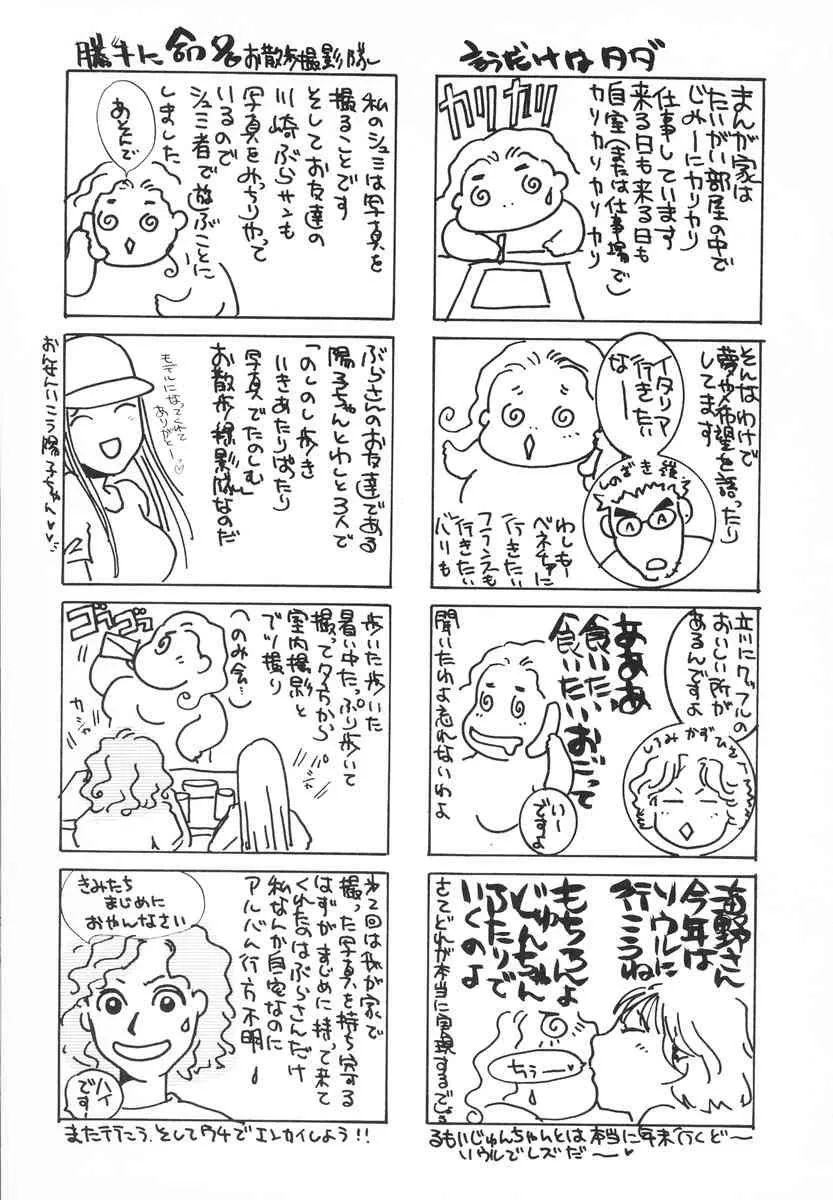 言うだけはタダ
まんが家は
たいがい部屋の中で
じみーにカリカリ
仕事しています
来る日も来る日も
自室(または仕事場で)
カリカリカリカリ
カリカリ
そんなわけで
夢や希望を語ったり
してます
イタリア
行きたい
なー
しのざき嶺
わしもー
ベネチアに
行きたい
フランスも
行きたい
パリも
立川にグッフルの
おいしい所が
あるんですよ
しうみかずひさ
ああぁ
食いたい
食いたいおごって
聞いたわよ忘れないわよ
いー
ですよ
海野さん
今年は
ソウルに
行こうね
もちろんよ
じゅんちゃん
ふたりで
いくのよ
ちぅー
さてどれが本当に実現するでしょ
るもいじゅんちゃんとは本当に年末行くどー
ソウルでレズだー
勝手に命名お散歩撮影隊
私のシュミは写真を
撮ることです
そしてお友達の
川崎ぶらサンも
写真をみっちりやって
いるので
シュミ者で遊ぶことに
しました
あそんで
ぶらさんのお友達である
陽子ちゃんとわしと3人で
「のしのし歩き
いきあたりばったり
写真でたのしむ
お散歩撮影隊」なのだ
モデルになってくれて
ありがとー
おんせんいこう陽子ちゃん
歩いた歩いた
暑い中たっぷり歩いて
撮って夕方から
室内撮影と
でい撮り
(のみ会…)
ゴッゴッ
カシャ
次回は我が家で
撮った写真を持ち寄る
はずがまじめに持って来て
くれたのはぶらさんだけ
私なんか自宅なのに
アルバム行方不明
きみたち
まじめに
おやんなさい
ハイ
です
また行こう、そしてウチでエンカイしよう!!